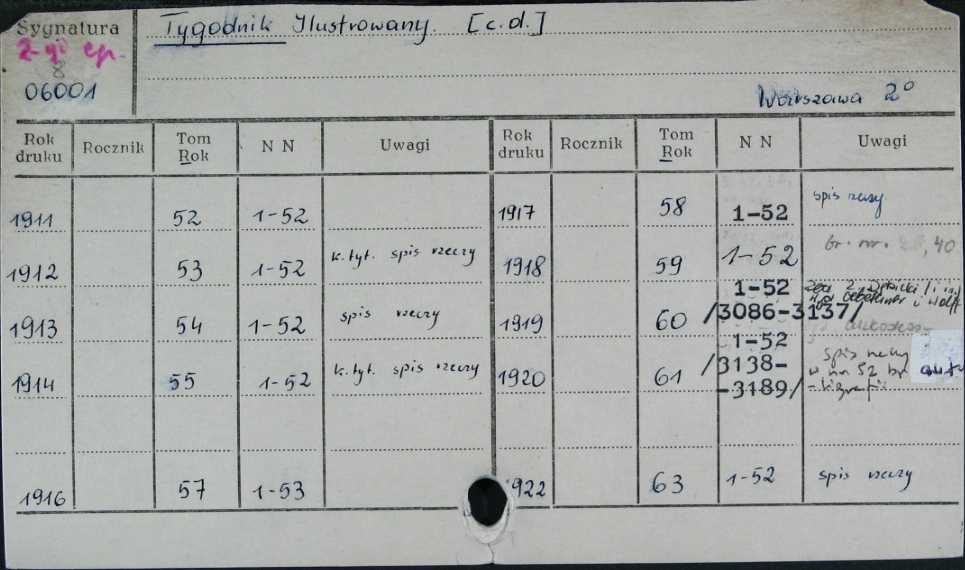 Sygnatura Tygodnik Ilustrowany. [c.d.]
2-gi eg.
06001 Warszawa 2°
Rok druku Rocznik Tom Rok N N Uwagi Rok druku Rocznik Tom Rok N N Uwagi
1911 52 1-52 1917 58 1-52 spis rzeczy
1912 53 1-52 k. tyt. spis rzeczy 1918 59 1-52 br. nr. 40
1913 54 1-52 spis rzeczy 1919 60 1-52 /3086-3137/
1914 55 1-52 k. tyt. spis rzeczy 1920 61 1-52 /3138-3189/ spis rzeczy w nr 52 br
1916 57 1-53 1922 63 1-52 spis rzeczy